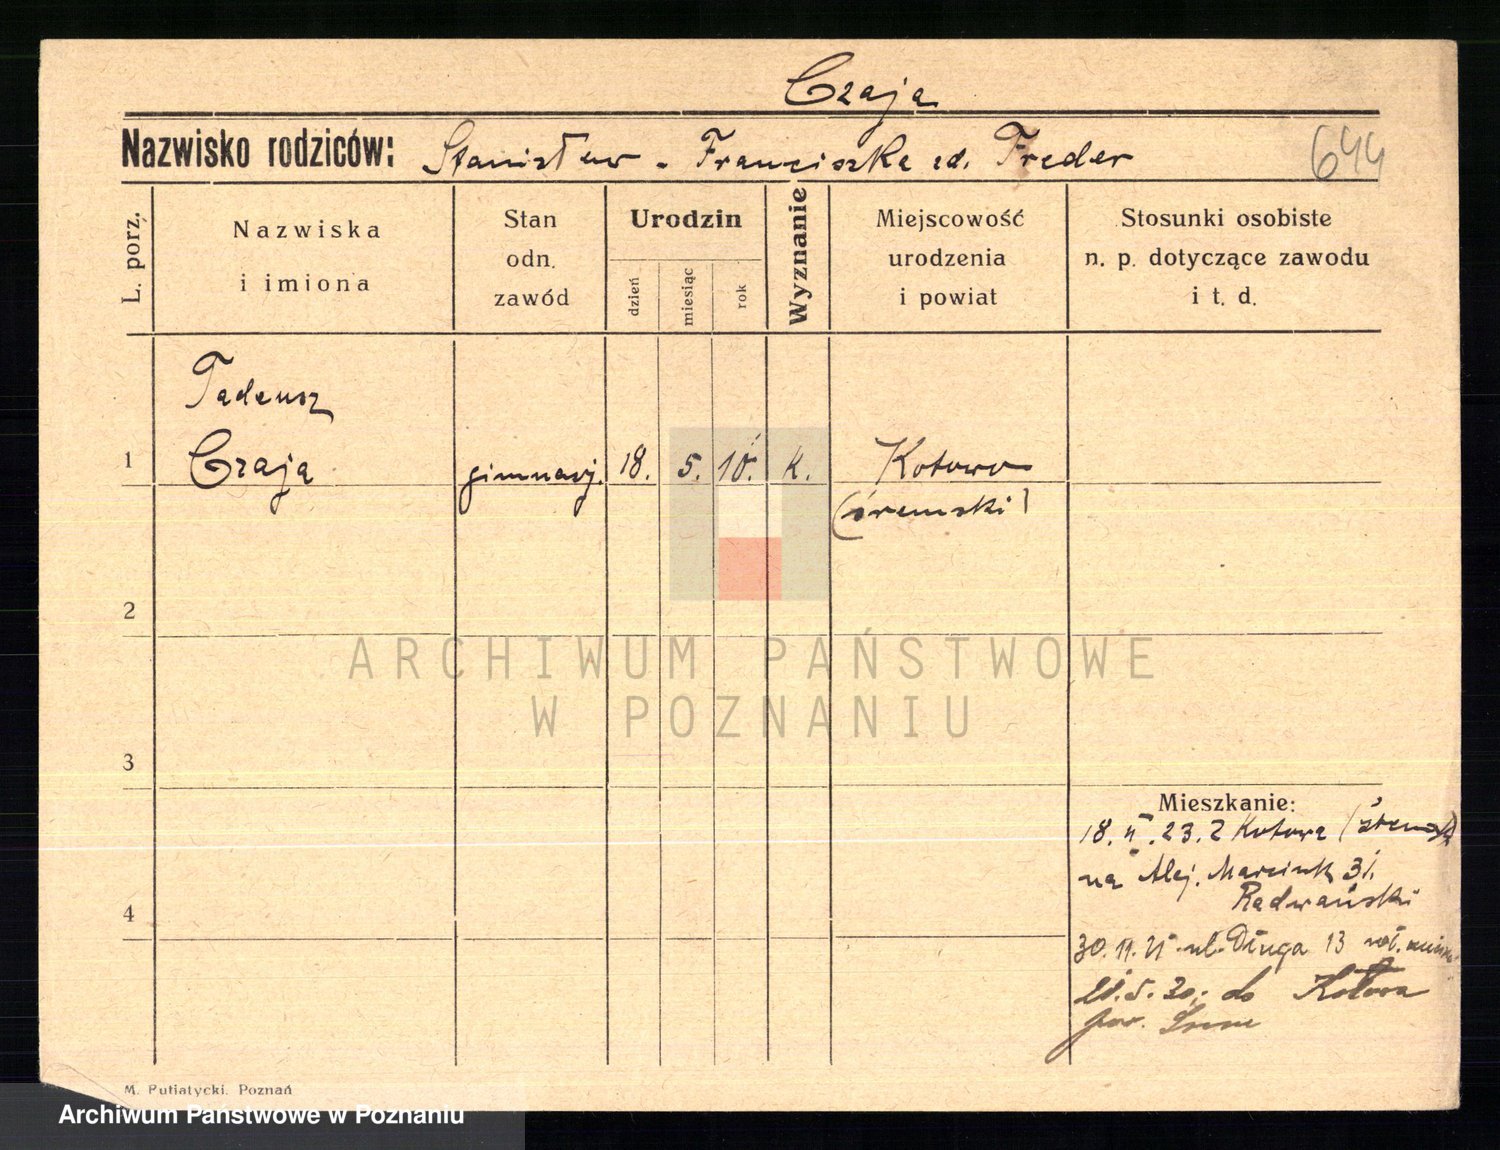 Czaja
Nazwisko rodziców: Stanisław - Franciszka zd. Freder
644
L. porz.
Nazwiska
i imiona
Stan
odn.
zawód
Urodzin
dzień
miesiąc
rok
Wyznanie
Miejscowość
urodzenia
i powiat
Stosunki osobiste
n. p. dotyczące zawodu
i t. d.
Tadeusz
1 Czaja gimnazj. 18. 5. 10. k. Kotowo
(śremski)
2
3
4
Mieszkanie:
18. 23. z Kotowa
na Alej. Marcink 31.
Radwański
30. 11. ul. Długa 13
5. 30. do Kotowa
pow. Śrem
M. Putiatycki, Poznań
ARCHIWUM PAŃSTWOWE
W POZNANIU
Archiwum Państwowe w Poznaniu